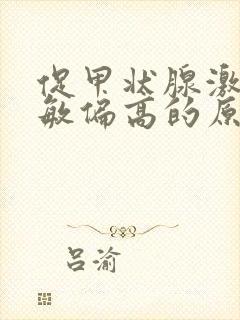 促甲状腺激
敏偏高的原
吕渝